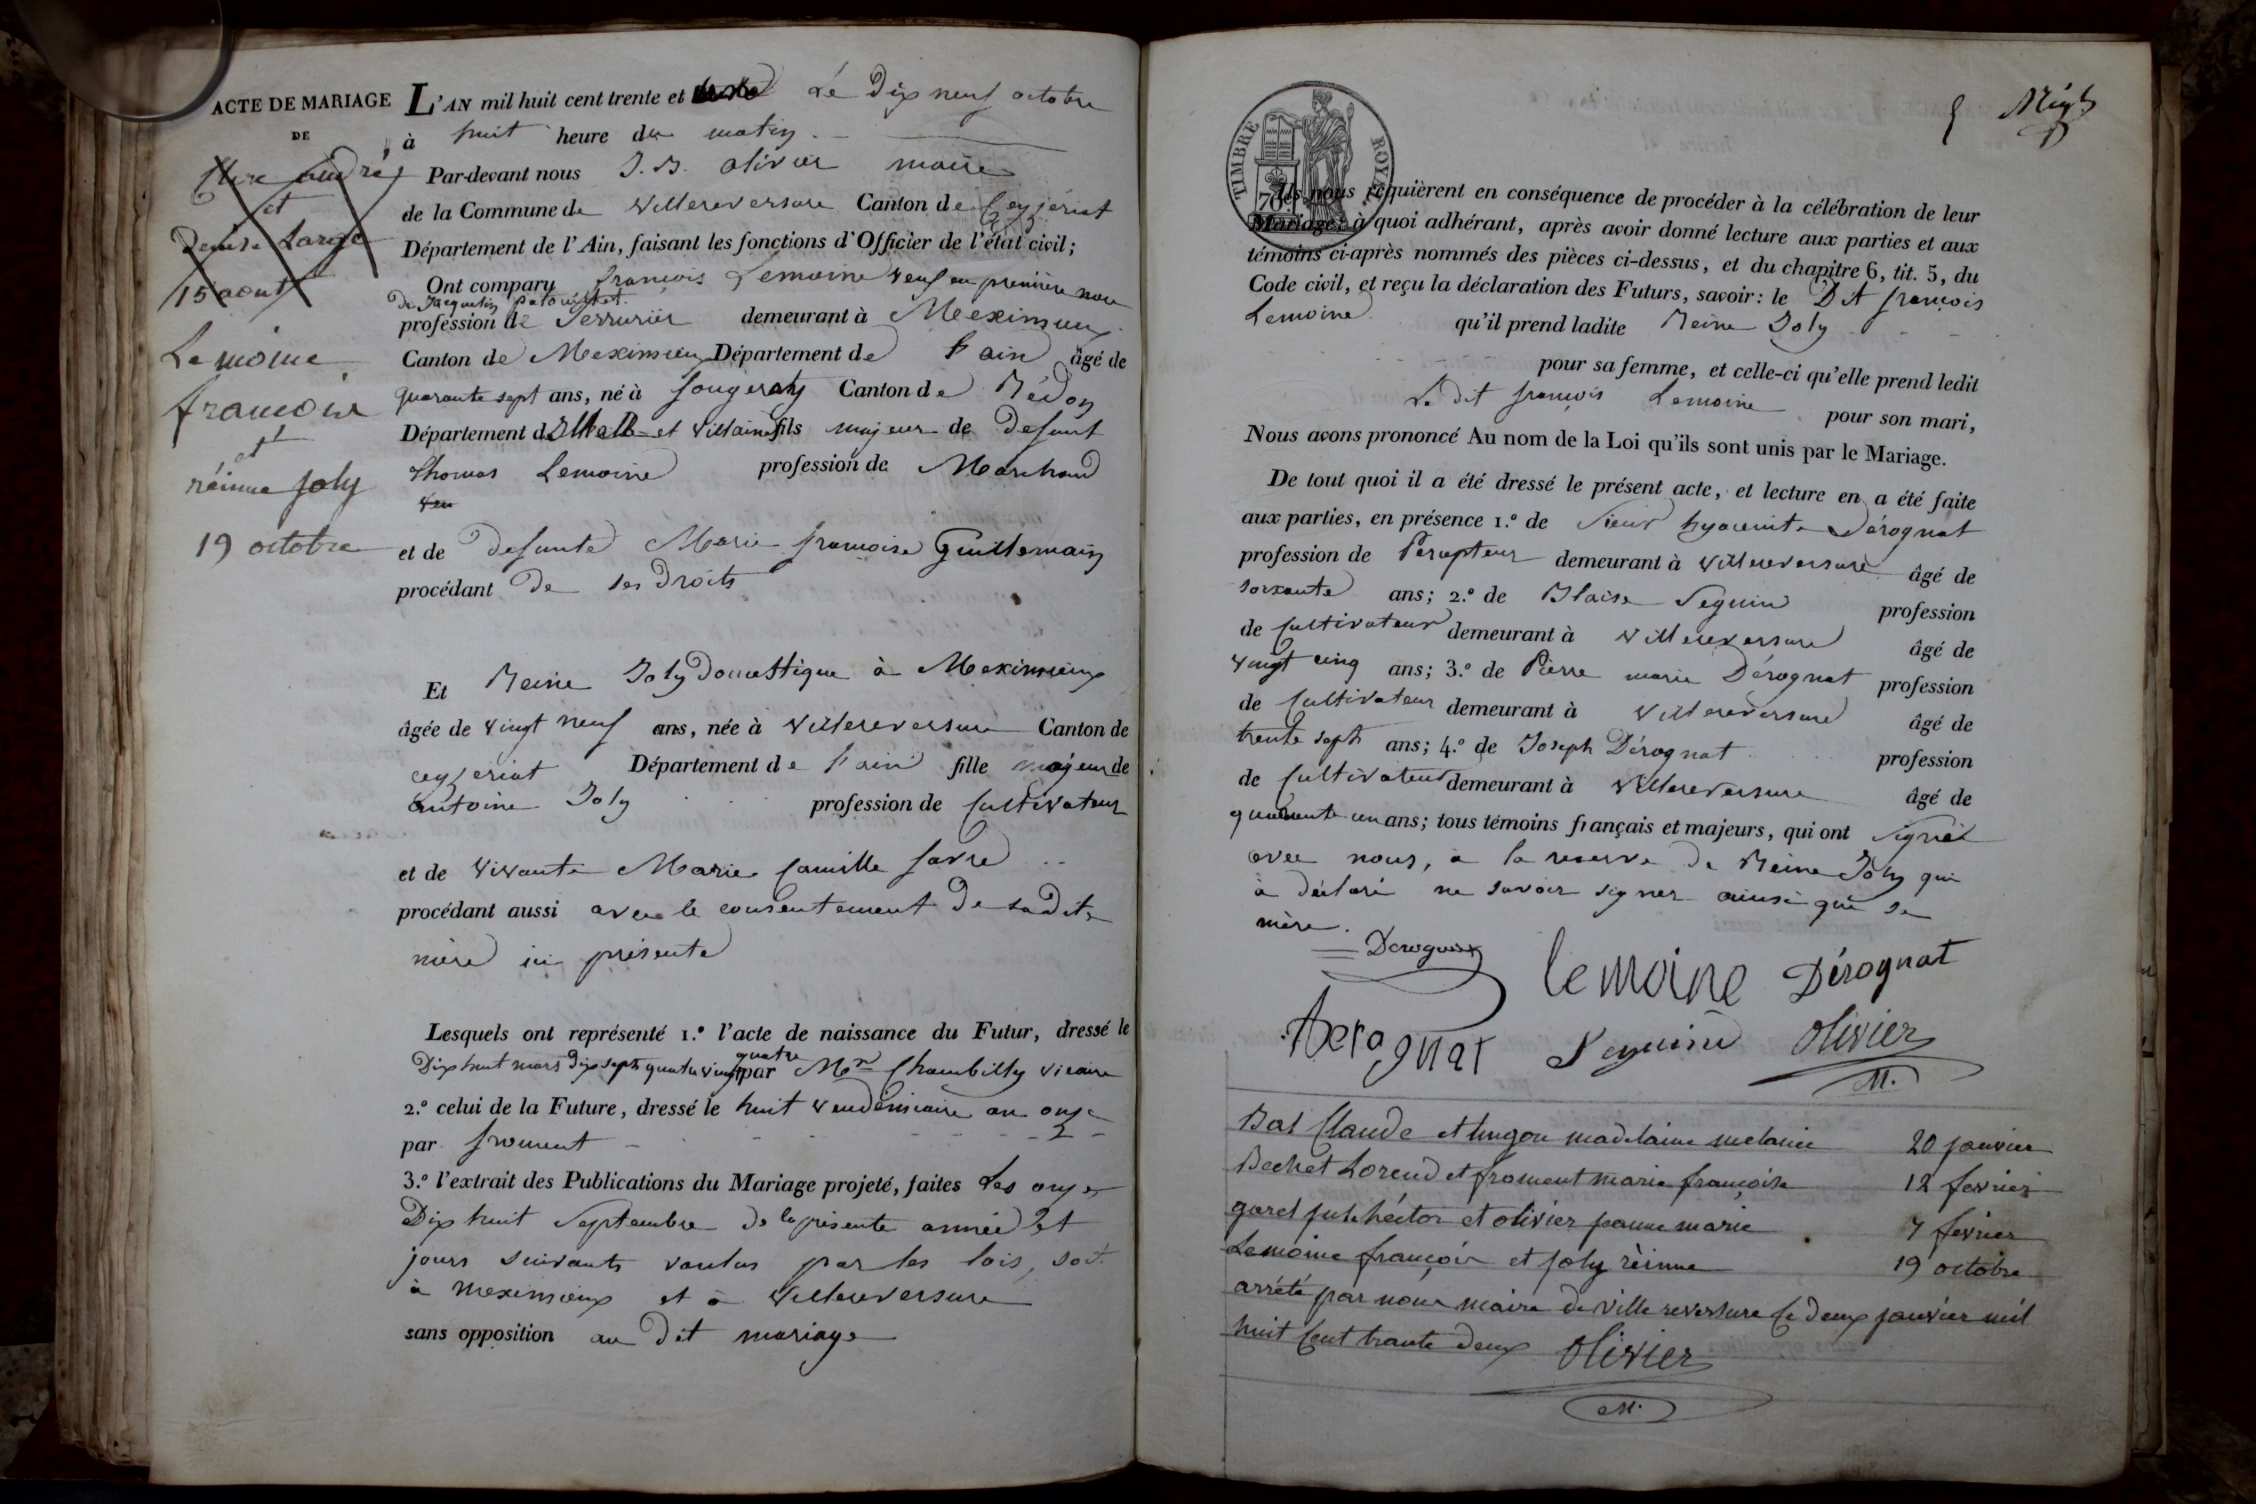 ACTE DE MARIAGE
DE
et
Denise Large
15 aout
Lemoine
françois
et
réinne joly
19 octobre
L'AN mil huit cent trente et Le Dix neuf octobre
à huit heure du matin.
Par-devant nous J. B. olivier maire
de la Commune de Villereversure Canton de Ceyzeriat
Département de l'Ain, faisant les fonctions d'Officier de l'état civil;
Ont comparu françois Lemoine veuf en première noce
De Jacqueline
profession de Serrurier demeurant à Meximieux
Canton de Meximieux Département de l'ain âgé de
quarante sept ans, né à fougeray Canton de Rédon
Département d'Ille et Villaine fils majeur de Defunt
Thomas Lemoine profession de Marchand
et de Defunte Marie françoise Guillemain
procédant De ses Droits
Et Reine Joly Domestique à Meximieux
âgée de vingt neuf ans, née à Villereversure Canton de
ceyzeriat Département de l'ain fille majeur de
antoine Joly profession de Cultivateur
et de vivante Marie Camille favre
procédant aussi avec le consentement De sa Dite
mère ici présente
Lesquels ont représenté 1.º l'acte de naissance du Futur, dressé le
quatre
Dix huit mars Dix sept quatre vingt par Mr Chambilly vicaire
2.º celui de la Future, dressé le huit vendémiaire an onze
par froment
3.º l'extrait des Publications du Mariage projeté, faites Les onze
Dix huit Septembre de la présente année et
jours suivants voulus par les lois, soit
à meximieux et à Villereversure
sans opposition au Dit mariage
TIMBRE ROYAL
70
Ils nous requièrent en conséquence de procéder à la célébration de leur
Mariage; à quoi adhérant, après avoir donné lecture aux parties et aux
témoins ci-après nommés des pièces ci-dessus, et du chapitre 6, tit. 5, du
Code civil, et reçu la déclaration des Futurs, savoir: le Dit françois
Lemoine qu'il prend ladite Reine Joly
pour sa femme, et celle-ci qu'elle prend ledit
Le dit françois Lemoine pour son mari,
Nous avons prononcé Au nom de la Loi qu'ils sont unis par le Mariage.
De tout quoi il a été dressé le présent acte, et lecture en a été faite
aux parties, en présence 1.º de Sieur hyacinte Dérognat
profession de Percepteur demeurant à Villereversure âgé de
soixante ans; 2.º de Blaise Seguin profession
de Cultivateur demeurant à Villereversure âgé de
vingt cinq ans; 3.º de Pierre marie Dérognat profession
de Cultivateur demeurant à Villereversure âgé de
trente sept ans; 4.º de Joseph Dérognat profession
de Cultivateur demeurant à Villereversure âgé de
quarante un ans; tous témoins français et majeurs, qui ont signés
avec nous, à la reserve de Reine Joly qui
à déclaré ne savoir signer ainsi que sa
mère.
Derognat lemoine Dérognat
Derognat Seguin Olivier
M.
Bal Claude et hugon madelaine melanie 20 janvier
Bechet Lorend et froment marie françoise 12 fevrier
garel jule héctor et olivier jeanne marie 7 fevrier
Lemoine françois et joly rèinne 19 octobre
arrété par nous maire de ville reversure le deux janvier mil
huit Cent trante deux Olivier
M.